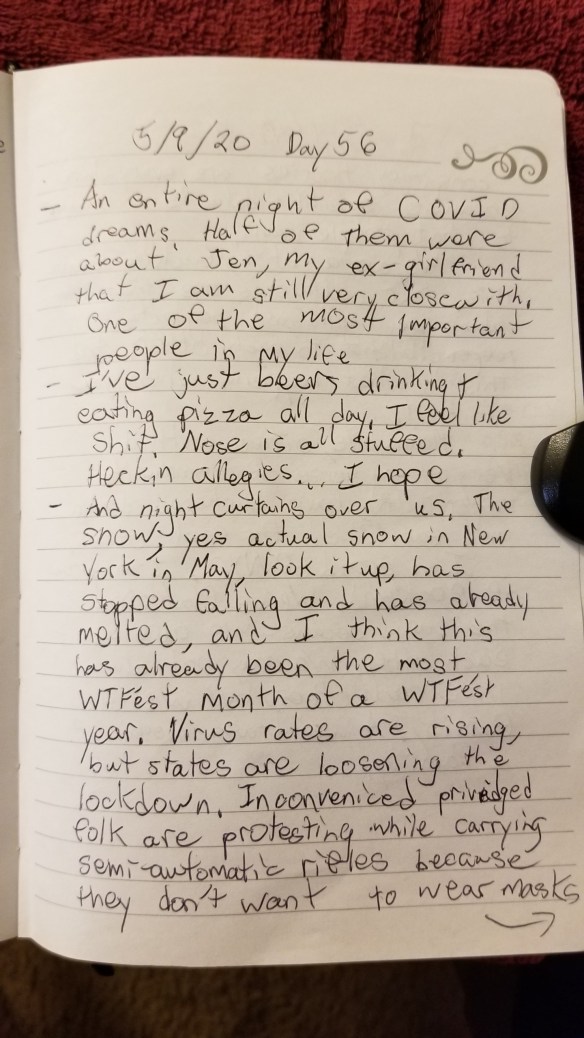 5/9/20 Day 56
- An entire night of COVID
dreams. Half of them were
about Jen, my ex-girlfriend
that I am still very close with.
One of the most important
people in my life
- I've just beers drinking +
eating pizza all day. I feel like
shit. Nose is all stuffed.
Heckin allegies... I hope
- And night curtains over us. The
snow, yes actual snow in New
York in May, look it up, has
stopped falling and has already
melted, and I think this
has already been the most
WTFést month of a WTFést
year. Virus rates are rising,
but states are loosening the
lockdown. Inconveniced priviledged
folk are protesting while carrying
semi-automatic rifles because
they don't want to wear masks
→